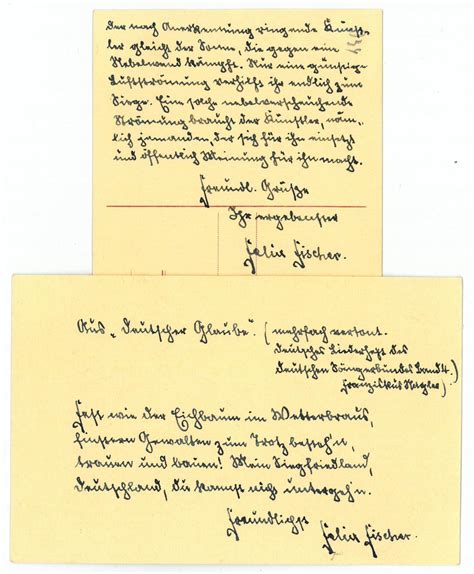 Der nach Anerkennung ringende Künst-
ler gleicht der Sonne, die gegen eine
Nebelwand kämpft. Nur eine günstige
Luftströmung verhilft ihr endlich zum
Siege. Eine solche nebelverscheuchende
Strömung braucht der Künstler, näm-
lich jemanden, der sich für ihn einsetzt
und öffentlich Meinung für ihn macht.
Freundl. Grüße
Ihr ergebenster
Felix Fischer.
Aus „Deutscher Glaube". (mehrfach vertont.
Deutsches Liederheft des
deutschen Sängerbundes Band 4.)
Franziskus Nagler)
Fest wie der Eichbaum im Wetterbraus,
finstern Gewalten zum Trotz bestehn,
trauen und bauen! Mein Siegfriedland,
Deutschland, du kannst nicht untergehn.
Freundlichst
Felix Fischer.